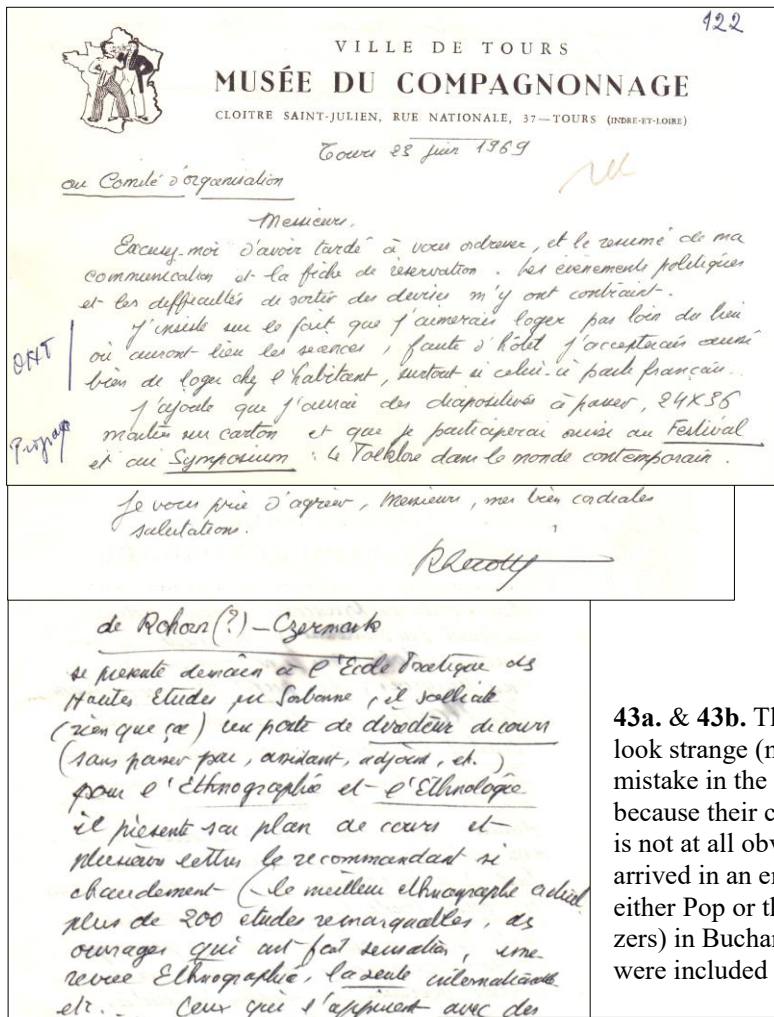 122
VILLE DE TOURS
MUSÉE DU COMPAGNONNAGE
CLOITRE SAINT-JULIEN, RUE NATIONALE, 37—TOURS (INDRE-ET-LOIRE)
Tours 23 juin 1969
au Comité d'organisation
Messieurs,
Excusez-moi d'avoir tardé à vous adresser, et le résumé de ma
communication et la fiche de réservation. Les évènements politiques
et les difficultés de sortir des devises m'y ont contraint.
J'insiste sur le fait que j'aimerais loger pas loin du lieu
où auront-lieu les séances, faute d'hôtel j'accepterais aussi
bien de loger chez l'habitant, surtout si celui-ci parle français.
ONT
J'ajoute que j'aurai des diapositives à passer, 24x36
montées sur carton et que je participerai aussi au Festival
et au Symposium : le Folklore dans le monde contemporain.
Je vous prie d'agréer, Messieurs, mes bien cordiales
salutations.
de Rohan(?) - Czermark
se présente demain à l'Ecole Pratique des
Hautes Etudes en Sorbonne, il sollicite
(rien que ça) un poste de directeur de cours
(sans passer par, assistant, adjoint, etc.)
pour l'Ethnographie et l'Ethnologie
il présente son plan de cours et
plusieurs lettres le recommandant si
chaudement (le meilleur ethnographe actuel
plus de 200 études remarquables, des
ouvrages qui ont fait sensation, une
revue Ethnographie, la seule internationale
etc. Ceux qui l'appuient avec des
43a. & 43b. Th
look strange (n
mistake in the
because their c
is not at all obv
arrived in an en
either Pop or th
zers) in Buchar
were included